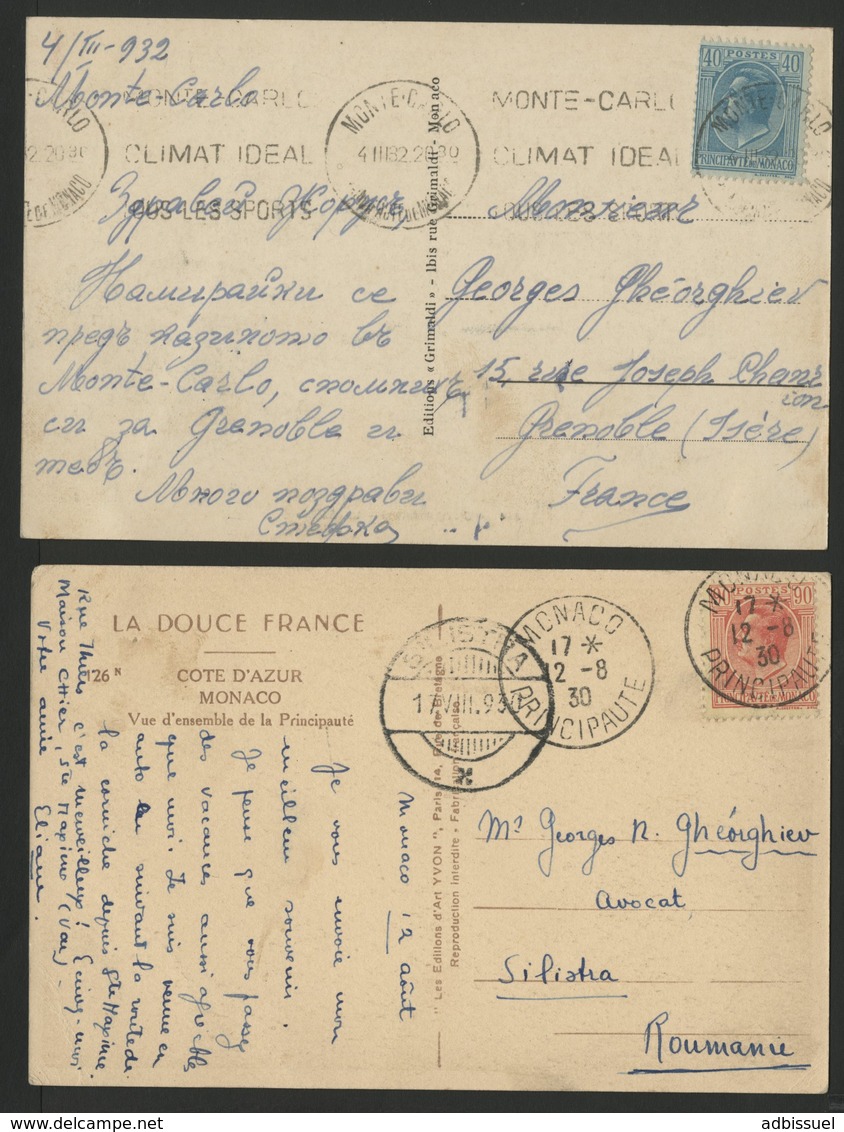 4/III-932
Monte-Carlo
MONTE-CARLO
CLIMAT IDEAL
OUS LES SPORTS
MONTE-CARLO
4 III 32.20 30
MONTE-CARLO
CLIMAT IDEAL
40 POSTES 40
PRINCIPAUTE DE MONACO
Здравей Жоржъ,
Намирайки се
предъ казиното въ
Monte-Carlo, спомнихъ
си за Grenoble и
тебъ.
Много поздрави
Стефка
Editions « Grimaldi » - 1bis rue Grimaldi - Monaco
Monsieur
Georges Ghéorghiev
15 rue Joseph Chanr
ion
Grenoble (Isère)
France
LA DOUCE FRANCE
126 N
COTE D'AZUR
MONACO
Vue d'ensemble de la Principauté
Monaco 12 août
Je vous envoie mon
meilleur souvenir.
Je pense que vous passez
des vacances aussi agréables
que moi. Je suis venue en
auto en suivant la route de
la corniche depuis Ste Maxime.
c'est merveilleux! Ecrivez-moi
Rue Thiers
Maison Ottier, Ste Maxime (Var)
Votre amie
Eliane.
" Les Editions d'Art YVON ", Paris, 14, Rue de Bretagne
Reproduction Interdite • Fabrication française
17 VIII.930
MONACO
17 *
12 -8
30
PRINCIPAUTE
MONACO
17 *
12 -8
30
PRINCIPAUTE
POSTES 90
PRINCIPAUTE DE MONACO
Mr Georges N. Ghéorghiev
Avocat
Silistra
Roumanie
adbissuel